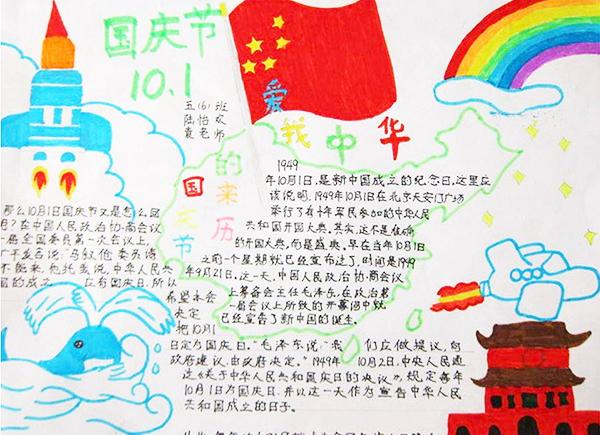 国庆节
10.1
五(6)班
陆怡欢
袁老师
爱我中华
国庆节的来历
1949
年10月1日,是新中国成立的纪念日,这里应
该说明,1949年10月1日在北京天安门广场
举行了有
军民参加的中华人民
共和国开国大典,其实,这不是在确
的开国大典,而是盛典,早在当年10月1日
之前一个星期就已经宣布过了,时间是1949
年9月21日,这一天,中国人民政治协商会议
上筹备会主任毛泽东,在政治第
一届会议上所致的开幕词中就
已经宣告了新中国的诞生。
那么10月1日国庆节又是怎么回
?在中国人民政治协商会议
一届全国委员第一次会议上,
不能来,他托我说,中华人民共
国的成立
应有国庆日,所以
希望本会
决定
把10月1
日定为国庆日。"毛泽东说"我们应做提议,向
政府建议,由政府决定。"1949年10月2日,中央人民通
过《关于中华人民共和国国庆日的决议》,规定每年
10月1日为国庆日,并以这一天作为宣告中华人民
共和国成立的日子。